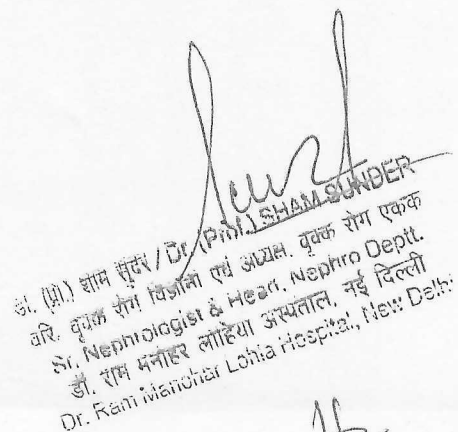 डा. (प्रो.) शाम सुंदर / Dr. (Prof.) SHAM SUNDER
वरि. वृक्क रोग विज्ञानी एवं अध्यक्ष, वृक्क रोग एकक
Sr. Nephrologist & Head, Nephro Deptt.
डॉ. राम मनोहर लोहिया अस्पताल, नई दिल्ली
Dr. Ram Manohar Lohia Hospital, New Delhi